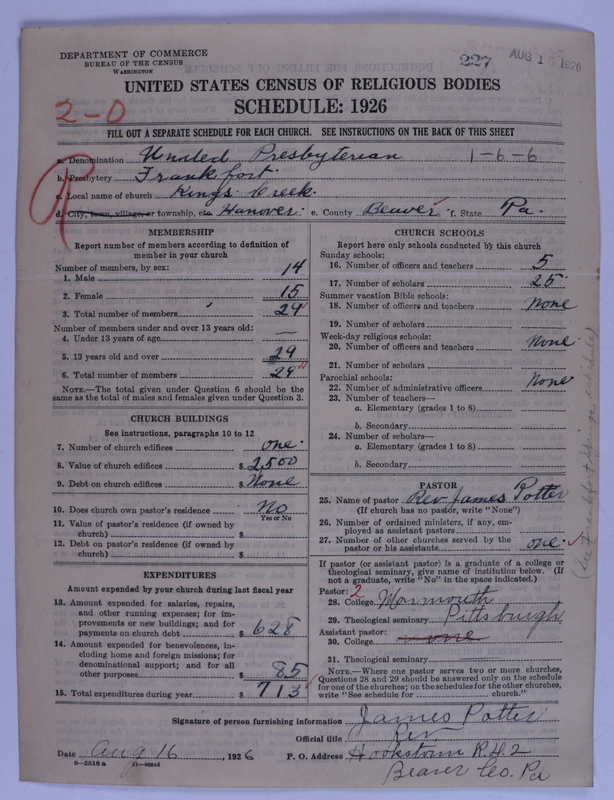 DEPARTMENT OF COMMERCE
BUREAU OF THE CENSUS
WASHINGTON
227
AUG 1 1926
UNITED STATES CENSUS OF RELIGIOUS BODIES
SCHEDULE: 1926
2-0
FILL OUT A SEPARATE SCHEDULE FOR EACH CHURCH. SEE INSTRUCTIONS ON THE BACK OF THIS SHEET
R
a. Denomination United Presbyterian 1-6-6
b. Presbytery Frankfort
c. Local name of church Kings Creek.
d. City, town, village, or township, etc. Hanover e. County Beaver f. State Pa.
MEMBERSHIP
Report number of members according to definition of
member in your church
Number of members, by sex:
1. Male 14
2. Female 15
3. Total number of members 29
Number of members under and over 13 years old:
4. Under 13 years of age —
5. 13 years old and over 29
6. Total number of members 29
NOTE.—The total given under Question 6 should be
same as the total of males and females given under Question 3.
CHURCH BUILDINGS
See instructions, paragraphs 10 to 12
7. Number of church edifices one
8. Value of church edifices $ 2500
9. Debt on church edifices $ None
10. Does church own pastor's residence? No
Yes or No
11. Value of pastor's residence (if owned by
church) $
12. Debt on pastor's residence (if owned by
church) $
EXPENDITURES
Amount expended by your church during last fiscal year
13. Amount expended for salaries, repairs,
and other running expenses; for im-
provements or new buildings; and for
payments on church debt $ 628
14. Amount expended for benevolences, in-
cluding home and foreign missions; for
denominational support; and for all
other purposes. $ 85
15. Total expenditures during year $ 713
CHURCH SCHOOLS
Report here only schools conducted by this church
Sunday schools:
16. Number of officers and teachers 5
17. Number of scholars 25
Summer vacation Bible schools:
18. Number of officers and teachers None
19. Number of scholars
Week-day religious schools:
20. Number of officers and teachers None
21. Number of scholars
Parochial schools:
22. Number of administrative officers None
23. Number of teachers—
a. Elementary (grades 1 to 8)
b. Secondary
24. Number of scholars—
a. Elementary (grades 1 to 8)
b. Secondary
PASTOR
25. Name of pastor Rev. James Potter
(If church has no pastor, write "None")
26. Number of ordained ministers, if any, em-
ployed as assistant pastors
27. Number of other churches served by the
pastor or his assistants one
If pastor (or assistant pastor) is a graduate of a college or
theological seminary, give name of institution below. (If
not a graduate, write "No" in the space indicated.)
Pastor: 2
28. College Monmouth
29. Theological seminary Pittsburgh
Assistant pastor:
30. College none
31. Theological seminary
NOTE.—Where one pastor serves two or more churches,
Questions 28 and 29 should be answered only on the schedule
for one of the churches; on the schedules for the other churches,
write "See schedule for church."
Signature of person furnishing information James Potter
Official title Rev
Date Aug 16, 1926 P. O. Address Hookstown R#2
Beaver Co. Pa
8-5518 a